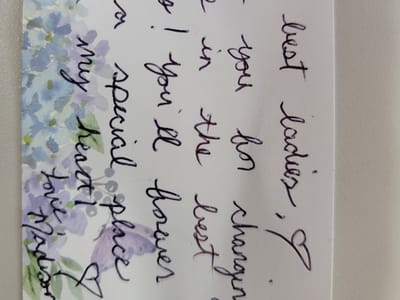 best ladies,
you for changing
in the best
! you'll forever
special place
my heart!
Love,
Madison